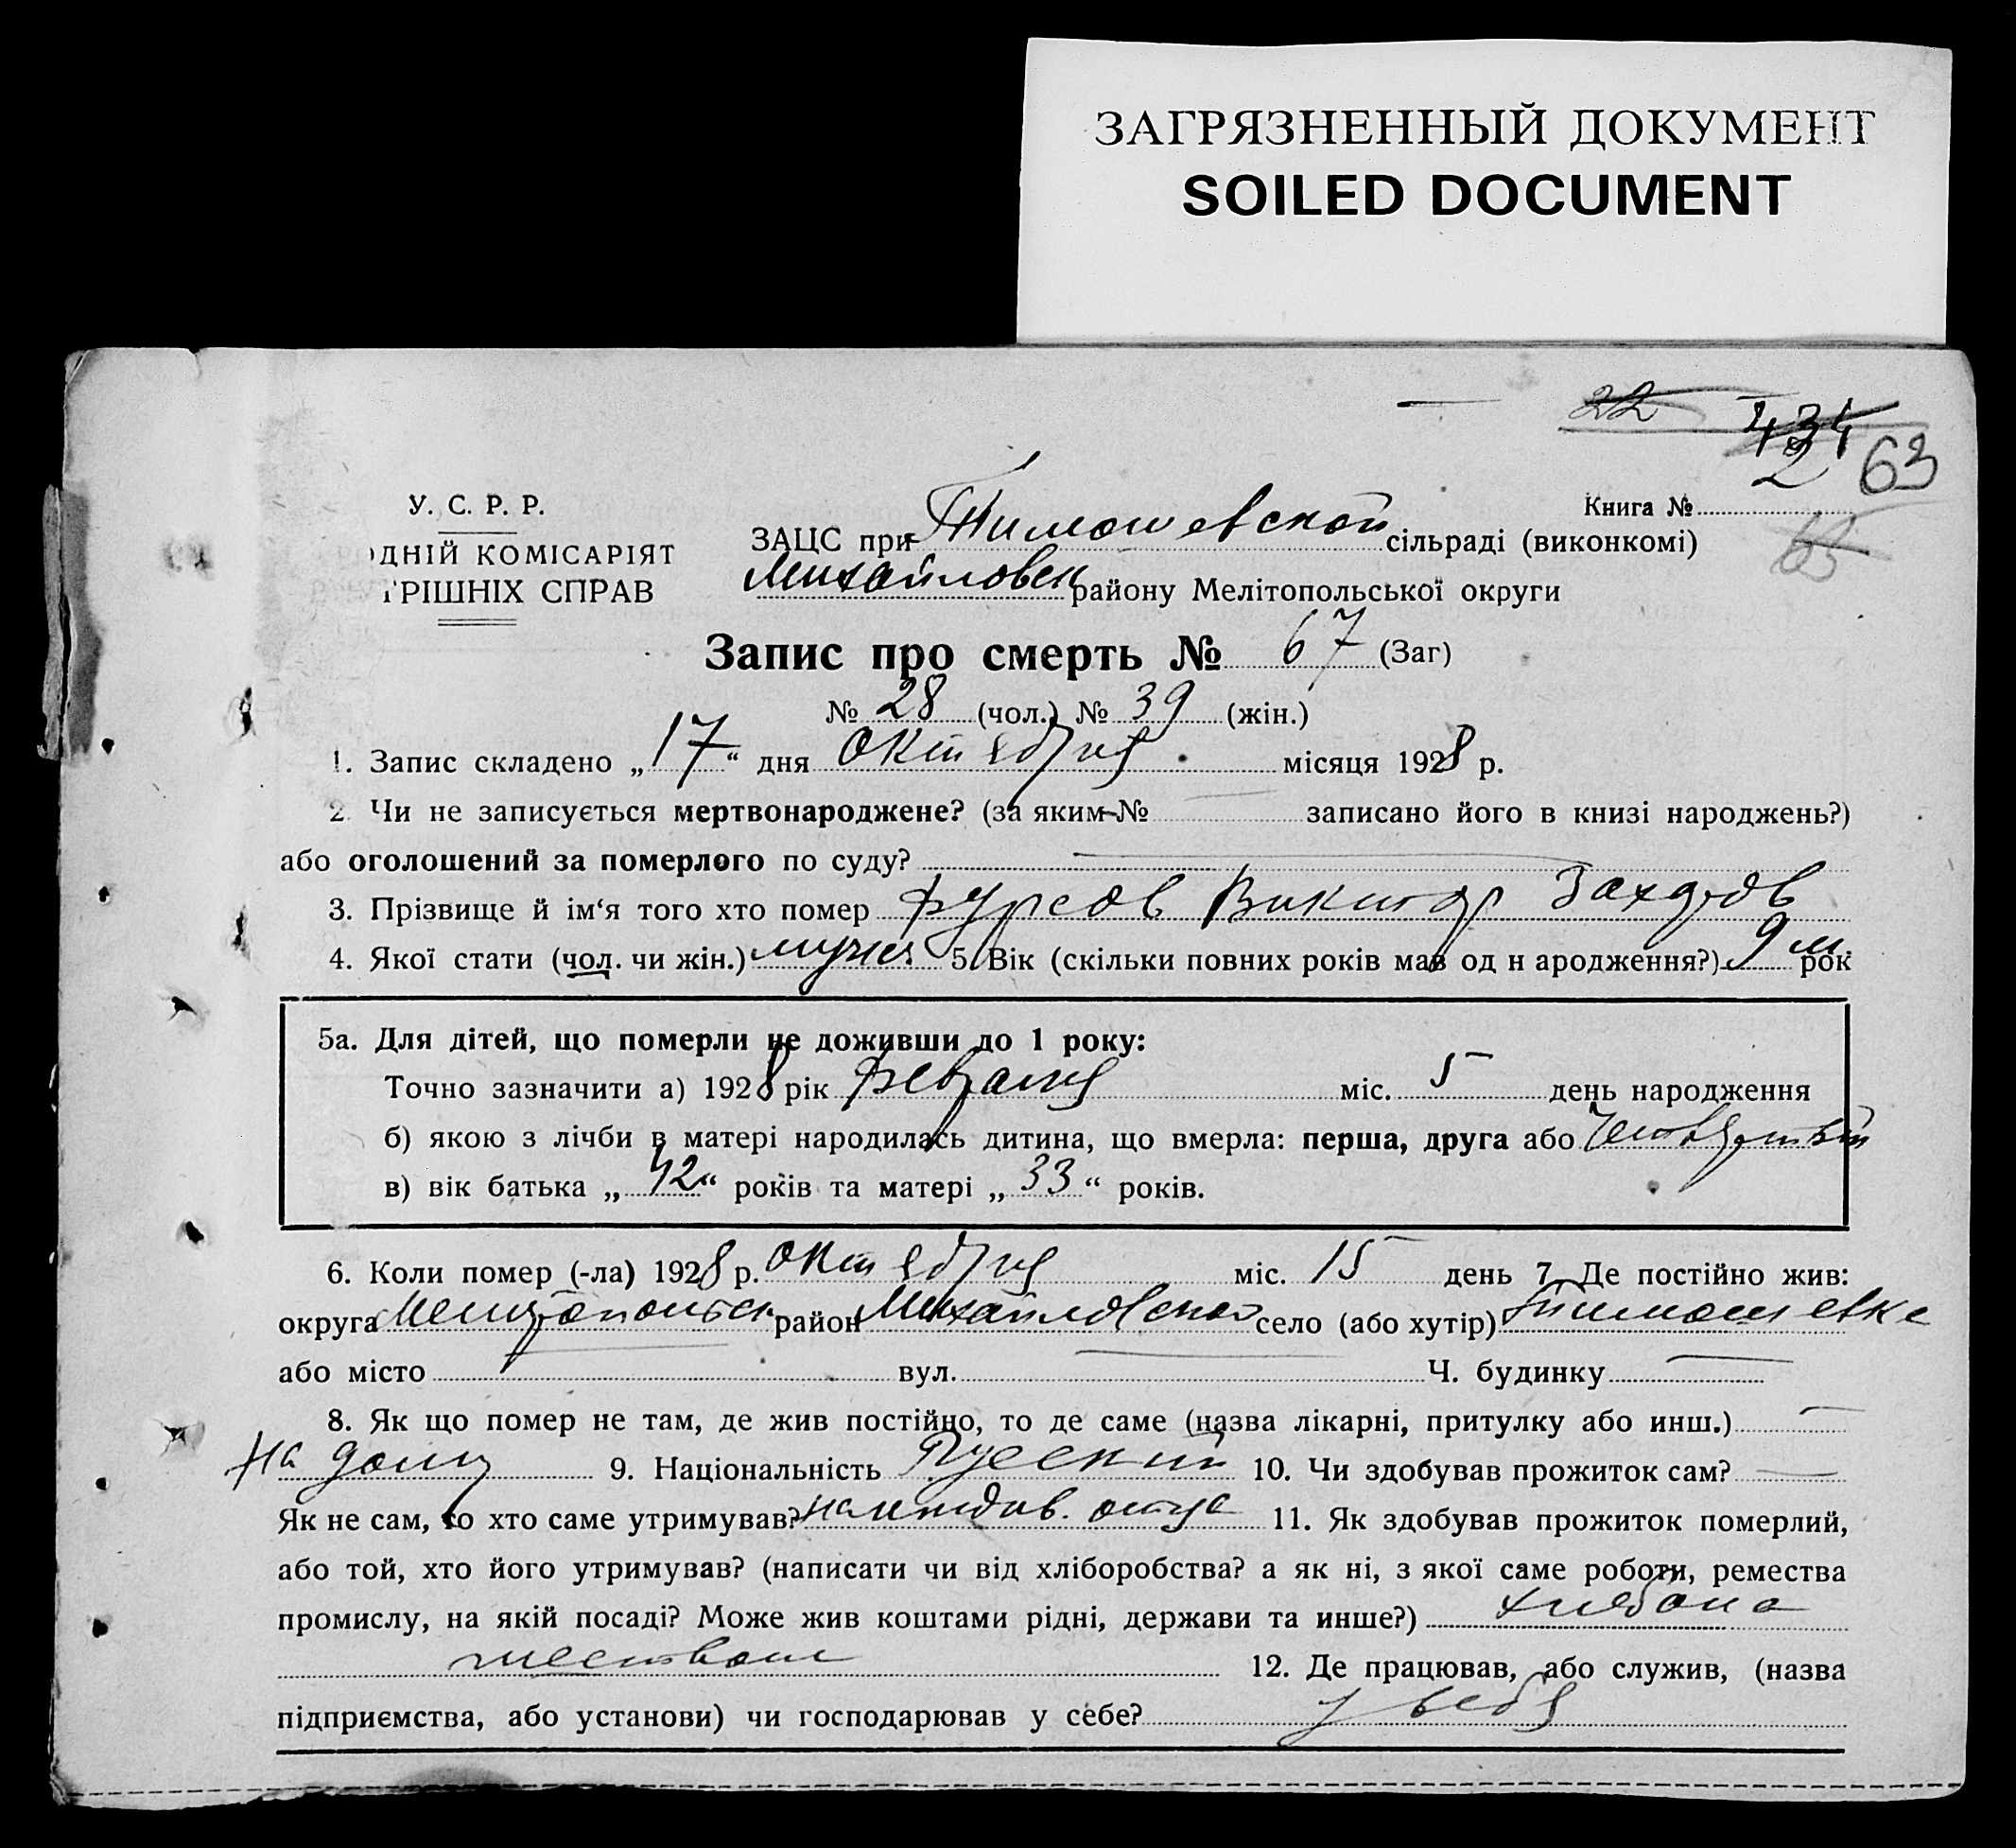 ЗАГРЯЗНЕННЫЙ ДОКУМЕНТ
SOILED DOCUMENT
22
434
2
63
У. С. Р. Р.
ОДНІЙ КОМІСАРІЯТ
ТРІШНІХ СПРАВ
Книга №
65
ЗАЦС при Тимошевской сільраді (виконкомі)
Михайловск району Мелітопольської округи
Запис про смерть № 67 (Заг)
№ 28 (чол.) № 39 (жін.)
1. Запис складено „17“ дня октября місяця 1928 р.
2. Чи не записується мертвонароджене? (за яким-№ записано його в книзі народжень?)
або оголошений за померлого по суду?
3. Прізвище й ім‘я того хто помер Фурсов Виктор
4. Якої стати (чол. чи жін.) 5. Вік (скільки повних років мав од н ародження?) 9 м. рок
5а. Для дітей, що померли не доживши до 1 року:
Точно зазначити а) 1928 рік февраля міс. 5 день народження
б) якою з лічби в матері народилась дитина, що вмерла: перша, друга або
в) вік батька „42“ років та матері „33“ років.
6. Коли помер (-ла) 1928 р. октября міс. 15 день 7. Де постійно жив:
округа Мелитопольск район Михайловской село (або хутір) Тимошевке
або місто вул. Ч. будинку
8. Як що помер не там, де жив постійно, то де саме (назва лікарні, притулку або инш.)
На дому 9. Національність Русский 10. Чи здобував прожиток сам?
Як не сам, то хто саме утримував? на иждив. отца 11. Як здобував прожиток померлий,
або той, хто його утримував? (написати чи від хліборобства? а як ні, з якої саме роботи, ремества
промислу, на якій посаді? Може жив коштами рідні, держави та инше?) хлебопа
шеством 12. Де працював, або служив, (назва
підприємства, або установи) чи господарював у себе? у себя